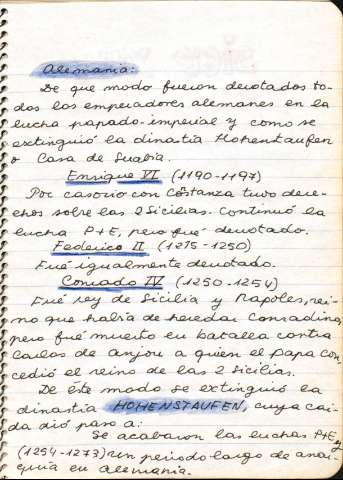 Alemania:
De que modo fueron derrotados to-
dos los emperadores alemanes en la
lucha papado-imperial y como se
extinguió la dinastía Hohenstaufen
o Casa de Suabia.
Enrique VI (1190-1197)
Por casorio con Constanza tuvo dere-
chos sobre las 2 Sicilias. Continuó la
lucha P+E, pero fué derrotado.
Federico II (1215-1250)
Fué igualmente derrotado.
Conrado IV (1250-1254)
Fué rey de Sicilia y Nápoles, rei-
no que había de heredar Conradino,
pero fué muerto en batalla contra
Carlos de Anjou a quien el Papa con-
cedió el reino de las 2 Sicilias.
De éste modo se extinguió la
dinastía HOHENSTAUFEN, cuya caí-
da dió paso a:
Se acabaron las luchas P+E, y
(1254-1273) un periodo largo de anar-
quía en Alemania.